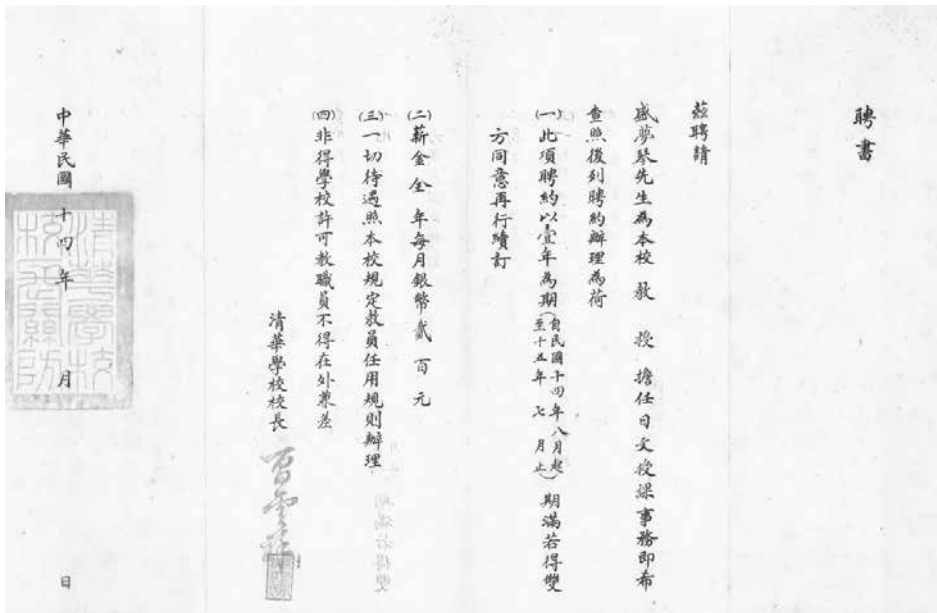 聘書
茲聘請
盛夢琴先生為本校 教 授 擔任日文授課事務即希
查照後列聘約辦理為荷
(一)此項聘約以壹年為期(自民國十四年八月起至十五年 七 月止)期滿若得雙
方同意再行續訂
(二)薪金全 年每月銀幣貳 百 元
(三)一切待遇照本校規定教員任用規則辦理
(四)非得學校許可教職員不得在外兼差
清華學校校長
中華民國 十四年 月 日
清華學校
校長關防